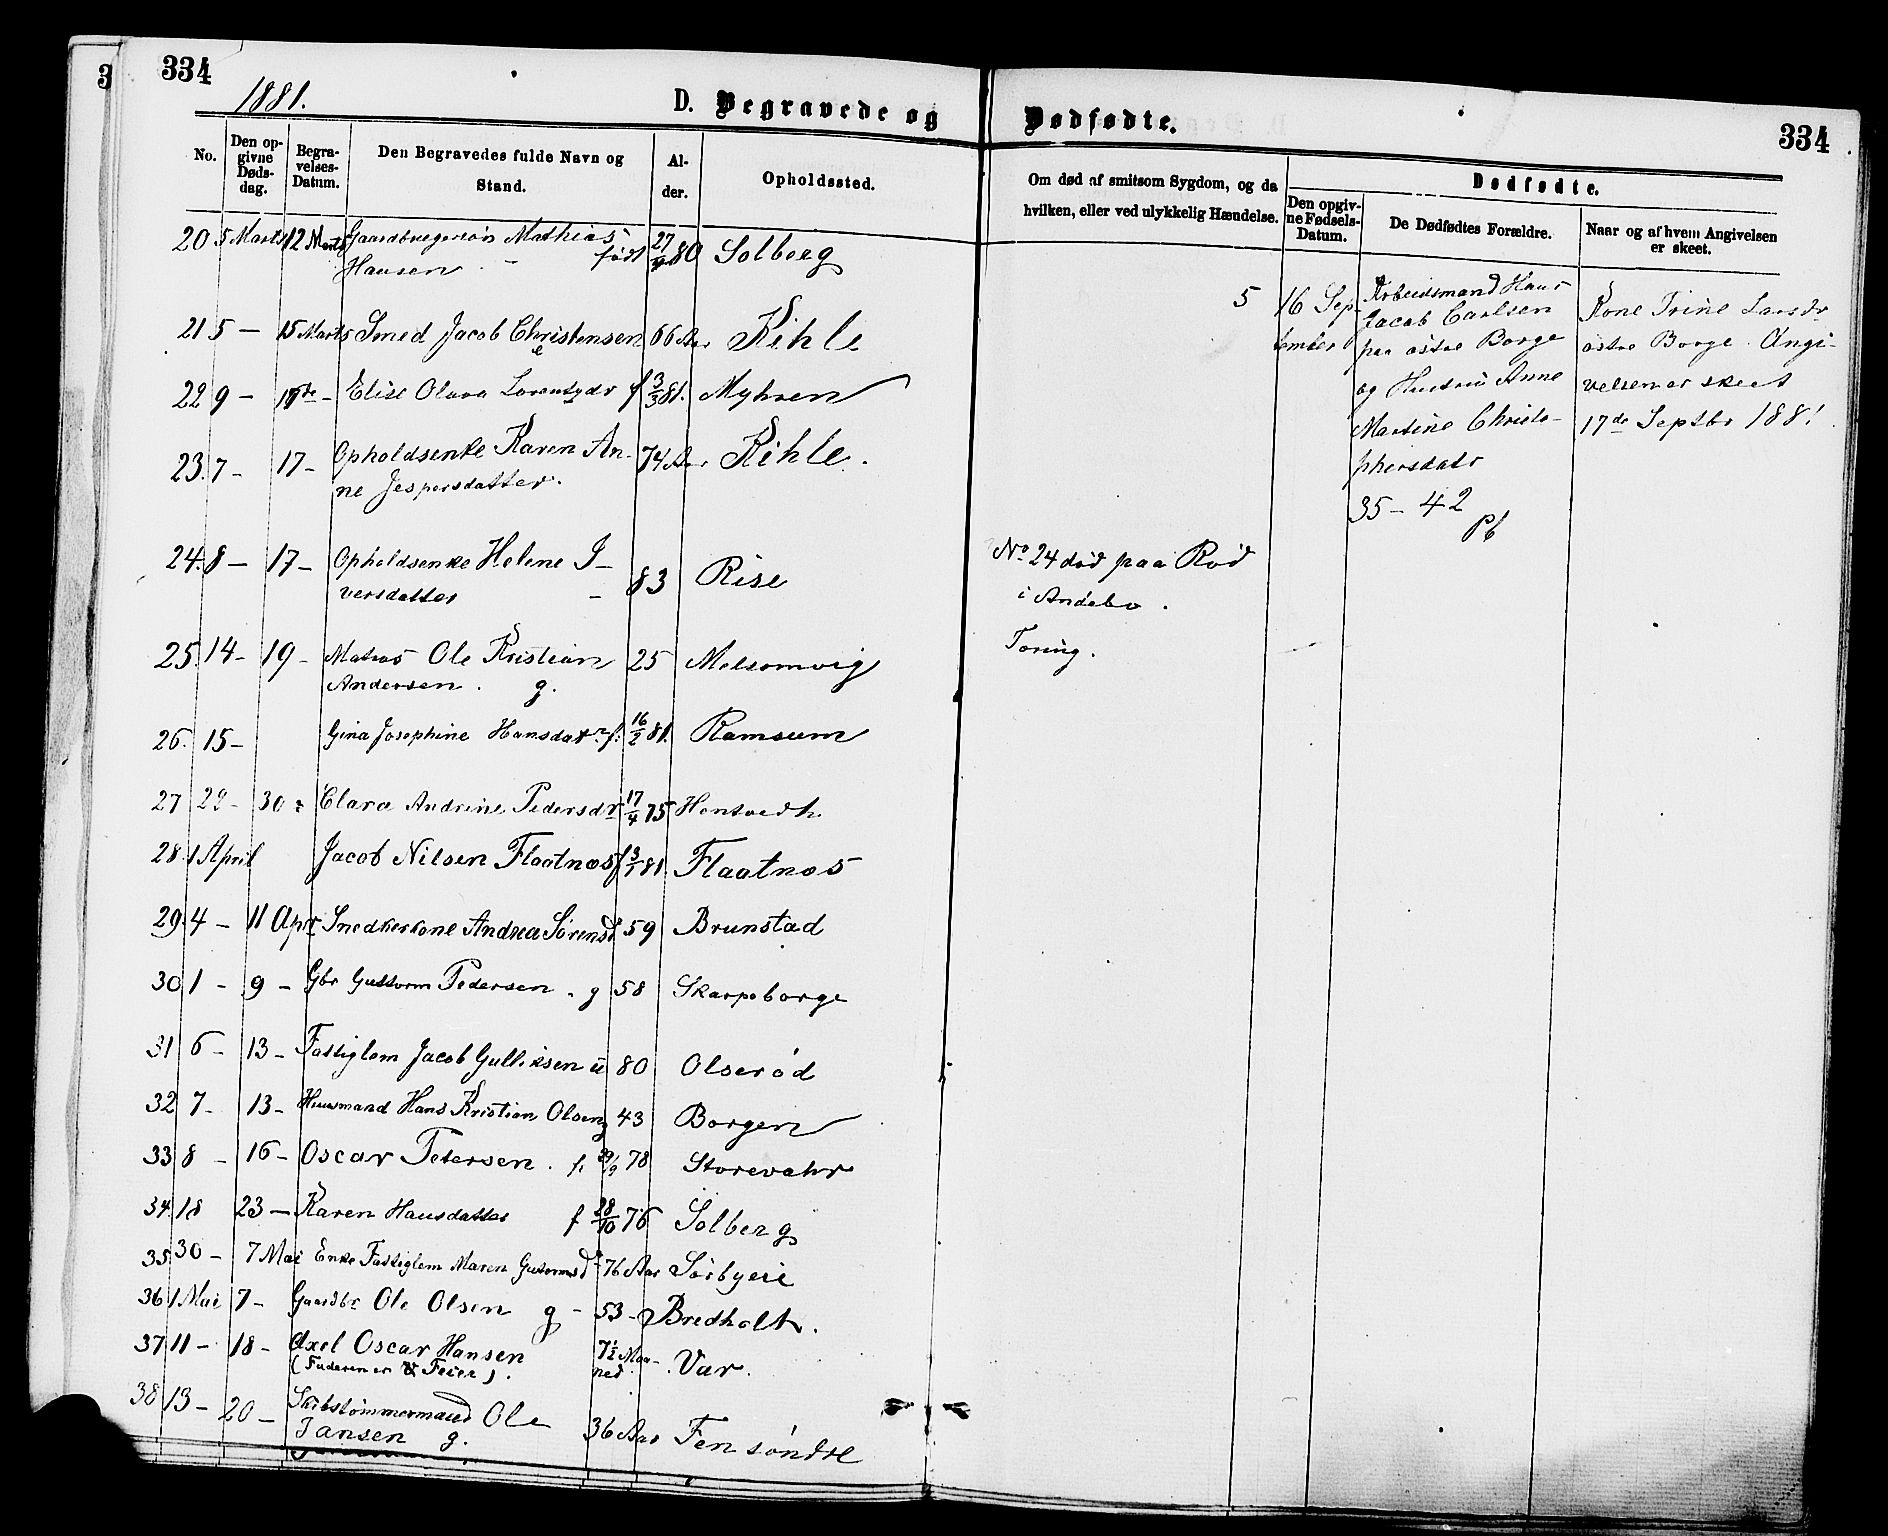 334
1881.
D. Begravede og Dødfødte.
334
No.
Den op-
givne
Døds-
dag.
Begra-
velses-
Datum.
Den Begravedes fulde Navn og
Stand.
Al-
der.
Opholdssted.
Om død af smitsom Sygdom, og da
hvilken, eller ved ulykkelig Hændelse.
Dødfødte.
Den opgiv-
ne Fødsels-
Datum.
De Dødfødtes Forældre.
Naar og af hvem Angivelsen
er skeet.
20 5 Marts 12 Marts Gaardbrugersøn Mathias 27/ 80 Solberg
Hansen - født
21 5 - 15 Marts Smed Jacob Christensen 66 Aar Kihle
e
22 9 - Elise Olava Lorentsdr f 3/3 81. Myhren
23. 7 - 17 - Opholdsenke Karen An- 74 Aar Kihle.
ne Jespersdatter.
24. 8 - 17 - Opholdsenke Helene I- 83 Rise
versdatter -
25. 14 - 19 - Matros Ole Kristian 25 Melsomvig
Andersen. g.
26. 15 - Gina Josephine Hansdatr f. 16/2 81. Ramsum
27 29 - 30 Clara Andrine Pedersdr 17/4 75 Hontvedt
28. 1 April Jacob Nilsen Flaatnæs f 3/1 81 Flaatnæs
29. 4 - 11 Apr Snedkerkone Andrea Sørensd 59 Brunstad
30 1 - 9 - Gbr Guttorm Pedersen - g 58 Skarpeborge
31 6 - 13 - Fattiglem Jacob Gulliksen u 80 Olserød
32 7 - 13 - Huusmand Hans Kristian Olsen g 43 Borgen
33 8 - 16 - Oscar Petersen. f. 29/9 78 Storevahr
34. 18 23 - Karen Hansdatter f 28/10 76 Solberg
35 30 - 7 Mai Enke Fattiglem Maren Guttormsd 76 Aar Sørbyeie
36 1 Mai 7 - Gaardbr Ole Olsen g - 53 - Bredholt.
37 11 - 18 - Axel Oscar Hansen 7½ Maa- Var.
(Faderen er Feier). ned
38 13 - 20 - Skibstømmermand Ole 36 Aar Fen søndre
Jansen g.
No 24 død paa Rød
i Andebo.
Tæring.
5 16 Sep-
tember
Arbeidsmand Hans
Jacob Carlsen
paa østre Borge
og Hustru Anne
Martine Christo-
phersdatr
35 - 42
Pb
Kone Trine Larsdr
østre Borge. Angi-
velsen er skeet
17de Septbr 1881